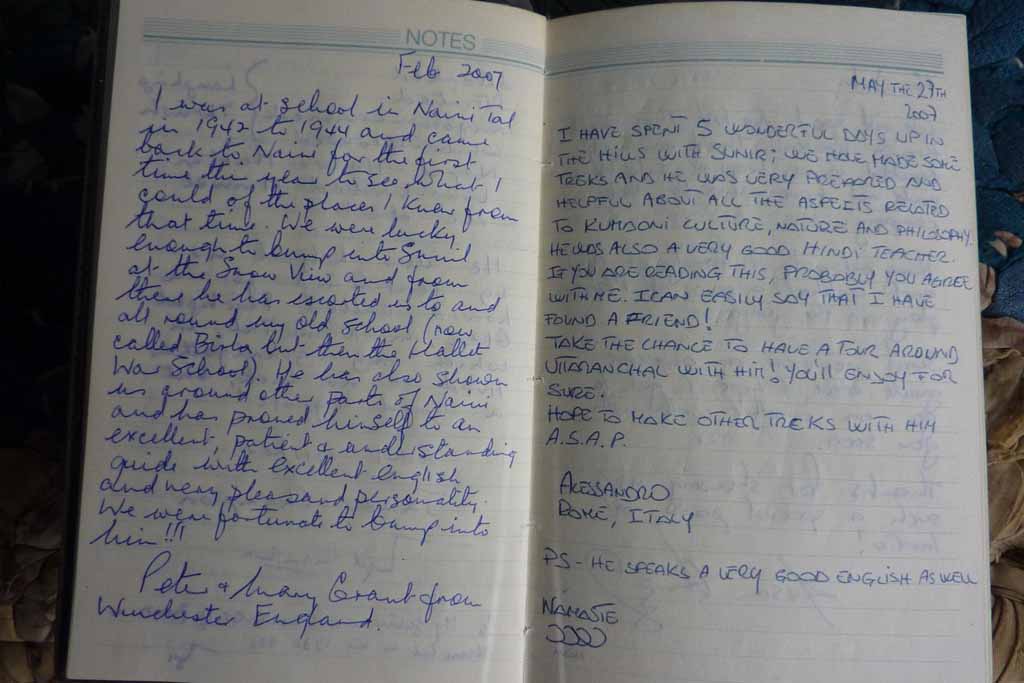 NOTES
Feb 2007
I was at school in Naini Tal
in 1942 to 1944 and came
back to Naini for the first
time this year to see what I
could of the places I knew from
that time. We were lucky
enough to bump into Sunil
at the Snow View and from
there he has escorted us to and
all round my old school (now
called Birla but then the Hallet
War School). He has also shown
us around other parts of Naini
and has proved himself to an
excellent, patient & understanding
guide with excellent english
and very pleasand personality.
We were fortunate to bump into
him!!!
Peter & Mary Grant from
Winchester England.
MAY THE 27TH
2007
I HAVE SPENT 5 WONDERFUL DAYS UP IN
THE HILLS WITH SUNIR; WE HAVE MADE SOME
TREKS AND HE WAS VERY PREPARED AND
HELPFUL ABOUT ALL THE ASPECTS RELATED
TO KUMAONI CULTURE, NATURE AND PHILOSOPHY.
HE WAS ALSO A VERY GOOD HINDI TEACHER.
IF YOU ARE READING THIS, PROBABLY YOU AGREE
WITH ME. I CAN EASILY SAY THAT I HAVE
FOUND A FRIEND!
TAKE THE CHANCE TO HAVE A TOUR AROUND
UTTARANCHAL WITH HIM! YOU'LL ENJOY FOR
SURE.
HOPE TO MAKE OTHER TREKS WITH HIM
A.S.A.P.
ALESSANDRO
ROME, ITALY
PS - HE SPEAKS A VERY GOOD ENGLISH AS WELL
NAMASTE